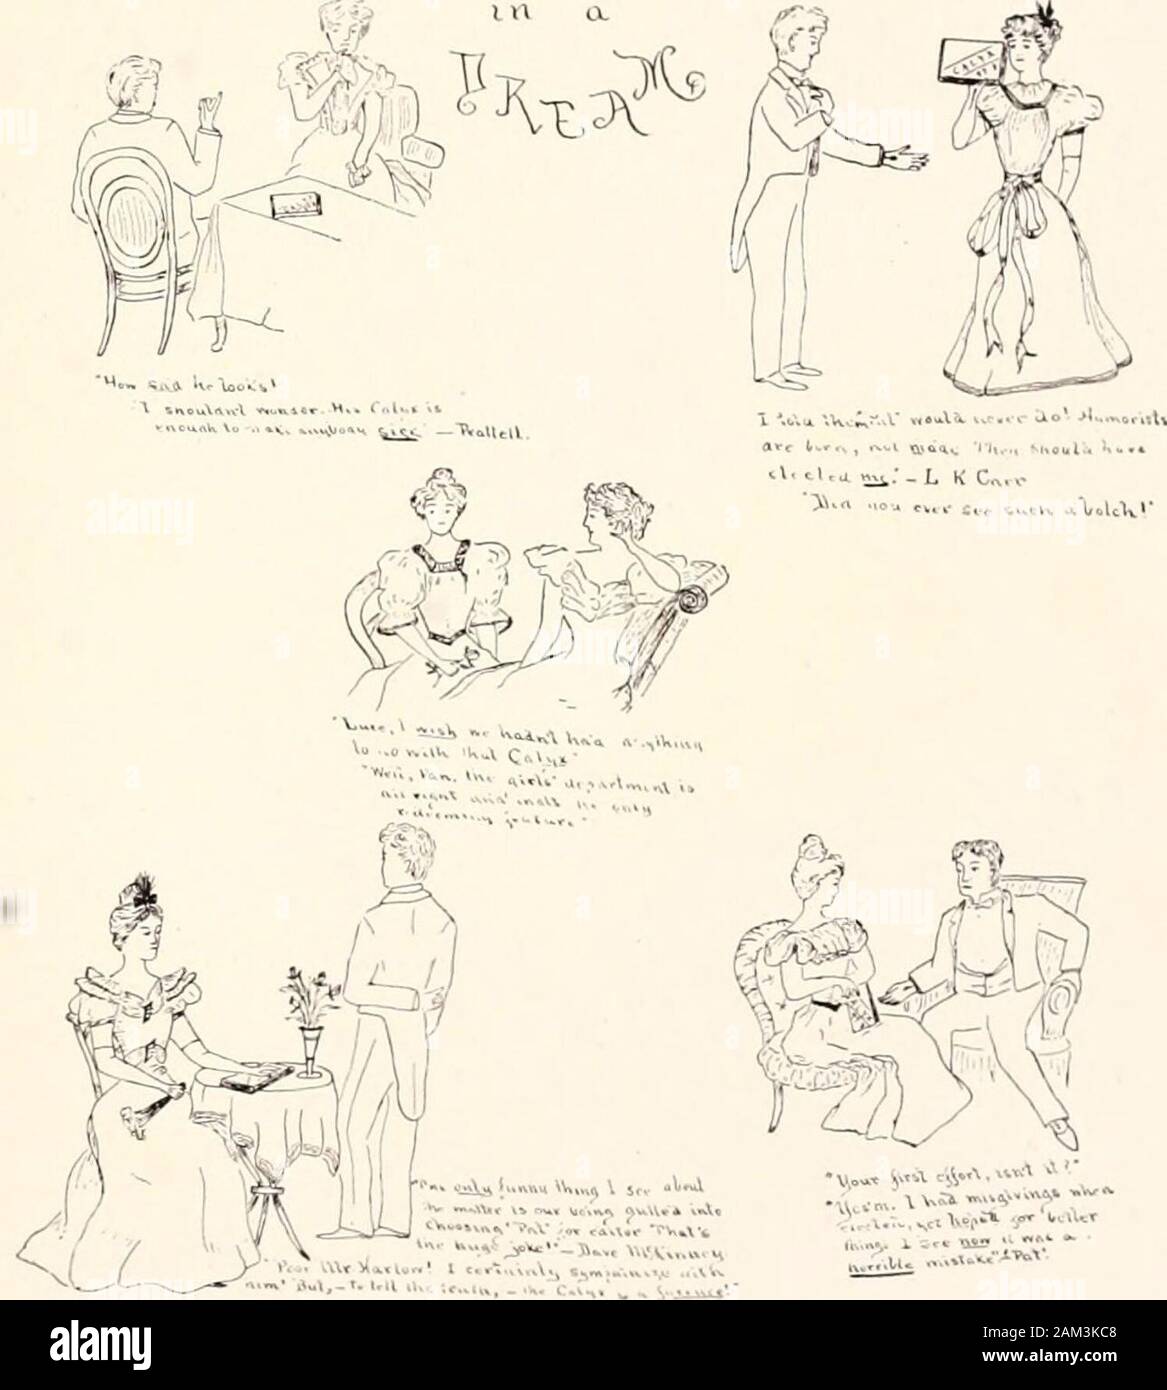 in a
DREAM
CALYX
"How sad he looks!
"I shouldn't wonder. His Calyx is
enough to make anybody sick." — Trallell.
I told them it would never do! Humorists
are born, not made. They should have
elected me." – L K Carr
"Did you ever see such a botch!"
"Luce, I wish we hadn't had anything
to do with that Calyx"
"Well, Pan, the girls' department is
all right and that's the only
redeeming feature."
only funny thing I see about
the matter is our being gulled into
choosing 'Pat' for editor That's
the huge joke!" — Dave McKinney
"Poor Mr Harlow! I certainly sympathize with
him! But, – to tell the truth, – the Calyx is a
"Your first effort, isn't it?"
"Yes'm. I had misgivings when
elected, yet hoped for better
things. I see now it was a
horrible mistake" – 'Pat'.
alamy
Image ID: 2AM3KC8
www.alamy.com